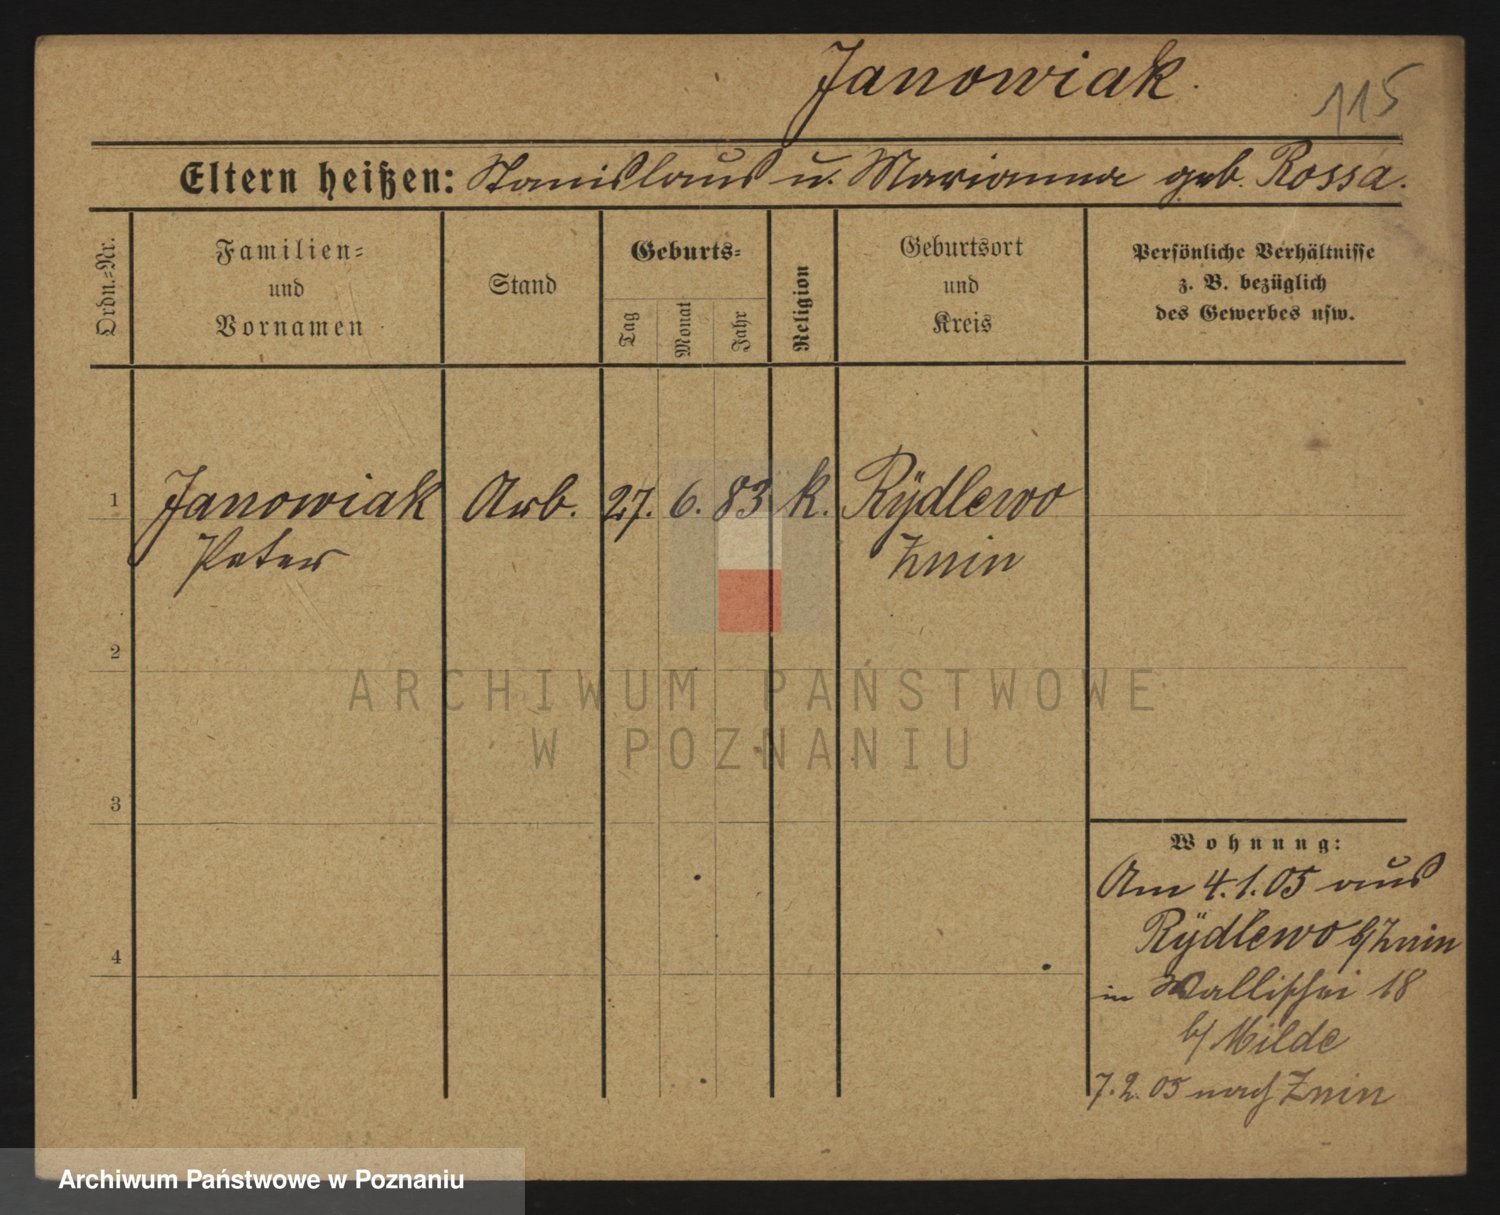 Janowiak.
115
Eltern heißen: Stanislaus u. Marianna geb. Rossa.
Ordn.-Nr.
Familien-
und
Vornamen
Stand
Geburts-
Tag
Monat
Jahr
Religion
Geburtsort
und
Kreis
Persönliche Verhältnisse
z. B. bezüglich
des Gewerbes usw.
1 Janowiak Arb. 27. 6. 83 k. Rÿdlewo
Peter Znin
2
ARCHIWUM PAŃSTWOWE
W POZNANIU
3
Wohnung:
Am 4.1.05 aus
Rÿdlewo b/Znin
4
in Wallischei 18
b/ Milde
7.2.05 nach Znin
Archiwum Państwowe w Poznaniu